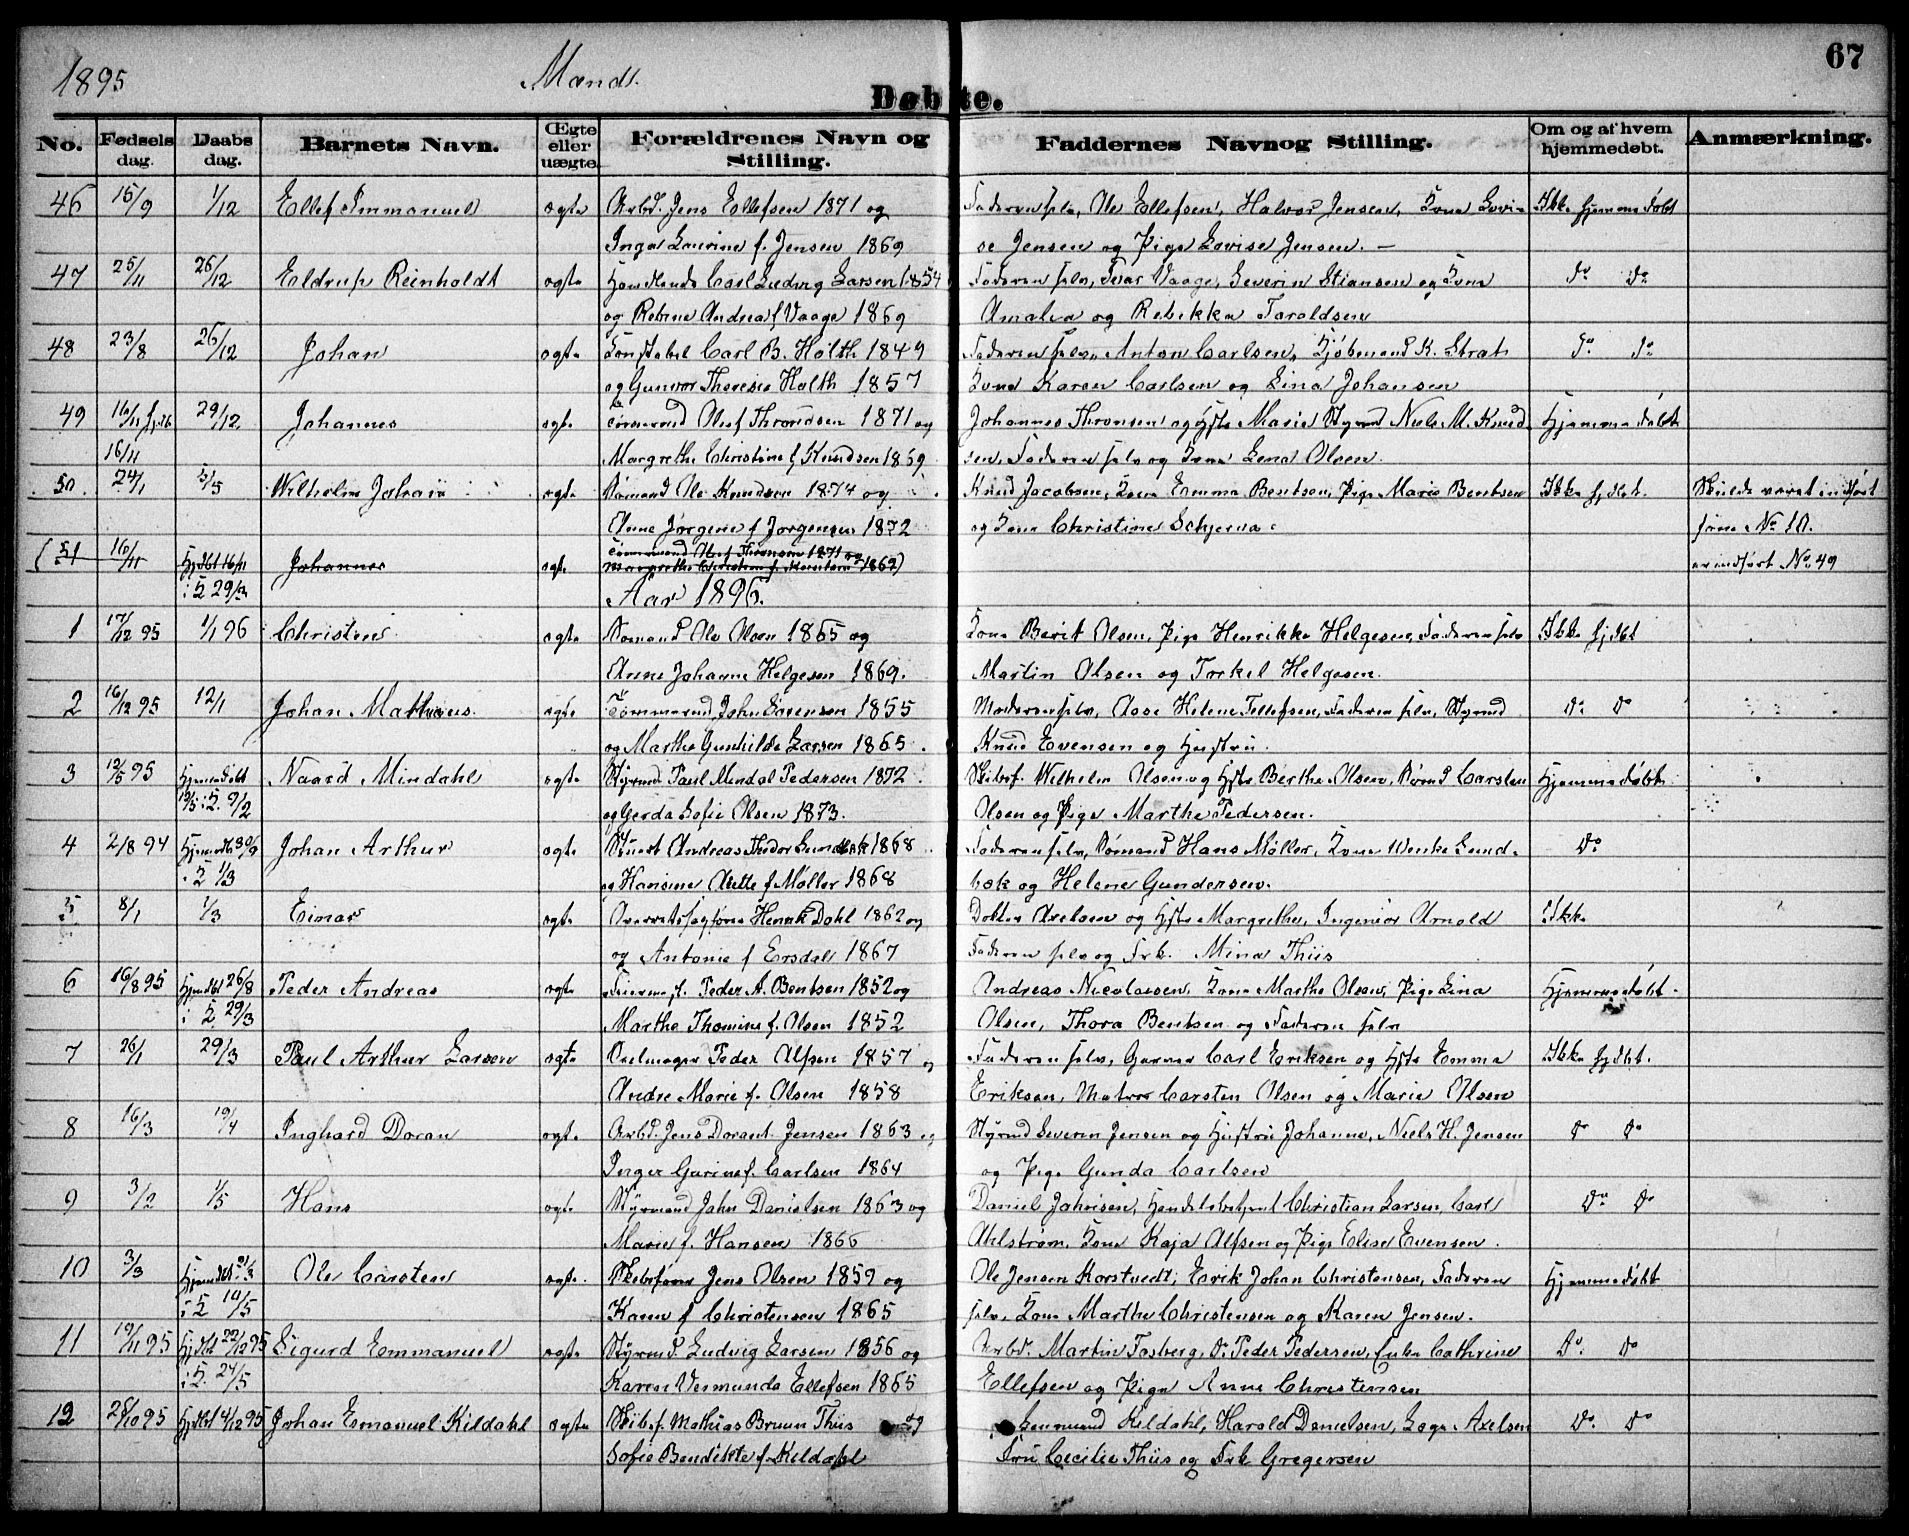 67
1895 Mænd.
Døbte.
No. Fødsels dag. Daabs dag. Barnets Navn. Ægte eller uægte Forældrenes Navn og Stilling. Faddernes Navn og Stilling. Om og af hvem hjemmedøbt. Anmærkning.
46 15/9 1/12 Ellef Immanuel ægte Arbd. Jens Ellefsen 1871 og Faderen selv, Ole Ellefsen, Halvor Jensen, Kone Lovi- Ikke hjemmedøbt
Inga Laurine f. Jensen 1869 se Jensen og Pige Lovise Jensen. —
47 25/11 26/12 Eldrup Reinholdt ægte Handlende Carl Ludvig Larsen 1854 Faderen selv, Ivar Vaage, Severin Stiansen og Kone do do
og Rebine Andrea f Vaage 1869 Amalia og Rebekka Taraldsen
48 23/8 26/12 Johan ægte Konstabel Carl B. Holth 1849 Faderen selv, Anton Carlsen, Kjøbmand K. Strat do do
og Gunvor Theresie Holth 1857 Kone Karen Carlsen og Lina Johansen
49 16/11 hjdb 29/12 Johannes ægte Tømmermd Oluf Throndsen 1871 og Johannes Thronsen og Hst Marie Styrmd Niels M. Knud- Hjemmedøbt
16/11 Margrethe Christine f Knudsen 1869 sen, Faderen selv og Kone Lena Olsen.
50. 24/1 5/5 Wilhelm Johan ægte Sømand Ole Knudsen 1874 og Knud Jacobsen, Kone Emma Bentsen, Pige Marie Bentsen Ikke hjdbt. Skulde været indført
Anne Jørgine f Jørgensen 1872 og Kone Christine Schjerva som No 10.
(51 16/11 Hjdbt 16/11 Johannes ægte Tømmermand Oluf Thronsen 1871 og er indført No 49
i K 29/3 Margrethe Christine f. Knudsen 1869)
Aar 1896.
1 17/12 95 1/1 96 Christen ægte Sømand Ole Olsen 1865 og Kone Berit Olsen, Pige Henrikke Helgesen, Faderen selv Ikke hjdbt
Anne Johanne Helgesen 1869. Martin Olsen og Torkel Helgesen.
2 16/12 95 12/1 Johan Mathias ægte Tømmermd John Sørensen 1855 Moderen selv, Aase Helene Tellefsen, Faderen selv, Styrmd do do
og Marthe Gunhilde Larsen 1865. Knud Evensen og Hustru.
3 12/5 95 Hjemmedøbt Naard Mindahl ægte Styrmd Paul Mindal Pedersen 1872 Skibsf. Wilhelm Olsen og Hst Berthe Olsen, Sømd Carsten Hjemmedøbt
19/5 i K. 9/2 og Gerda Sofie Olsen 1873. Olsen og Pige Marthe Pedersen.
4 2/8 94 Hjemdbt 30/9 Johan Arthur ægte Stuert Andreas Thodor Lundbæk 1868 Faderen selv, Sømand Hans Møller, Kone Wenke Lund- do
i K 1/3 og Hansine Axette f. Møller 1868 bæk og Helene Gundersen.
5 8/1 1/3 Einar ægte Overretssagfører Henrik Dahl 1862 og Doktor Axelsen og Hst Margrethe, Ingeniør Arnold Ikke
og Antonie f Ersdal 1867 Faderen selv og Frk. Mina Thiis
6 16/8 95 Hjemdbt 26/8 Peder Andreas ægte Peder A. Bentsen 1852 og Andreas Nicolaisen, Kone Marthe Olsen, Pige Lina Hjemmedøbt.
i K 29/3 Marthe Thomine f. Olsen 1852 Olsen, Thora Bentsen og Faderen selv
7 26/1 29/3 Paul Arthur Larsen ægte Seilmager Peder Alfsen 1857 og Faderen selv, Garver Carl Eriksen og Hst Emma Ikke hjdbt.
Andre Marie f. Olsen 1858 Eriksen, Matros Carsten Olsen og Marie Olsen
8 16/3 19/4 Inghard Doran ægte Arbd. Jens Dorant. Jensen 1863 og Styrmd Severin Jensen og Hustru Johanne, Niels H. Jensen do do
Inger Gurine f. Carlsen 1864 og Pige Gunda Carlsen
9 3/2 1/5 Hans ægte Styrmand John Danielsen 1863 og Daniel Johnsen, Handelsbetjent Christian Larsen, Carl do do
Marie f. Hansen 1866 Ahlstrøm, Kone Kaja Alfsen og Pige Elise Evensen.
10 3/3 Hjemdbt 31/3 Ole Carsten ægte Skibsfører Jens Olsen 1859 og Ole Jensen Korstvedt, Erik Johan Christensen, Faderen Hjemmedøbt
i K 10/5 Karen f Christensen 1865 selv, Kone Marthe Christensen og Karen Jensen.
11 19/11 95 Hjdbt 22/12 95 Sigurd Emmanuel ægte Styrmd. Ludvig Larsen 1856 og Arbd. Martin Fosberg, do Peder Pedersen, Enke Cathrine do do
i K. 24/5 Karen Vermunda Ellefsen 1865 Ellefsen og Pige Anne Christensen
12 28/10 95 Hjdbt 4/12 95 Johan Emanuel Kildahl ægte Skibsf. Mathias Bruun Thiis og Kildahl, Harald Danielsen, Læge Axelsen do do
Sofie Bendikte f. Kildahl Fru Cecilie Thiis og Frk Gregersen